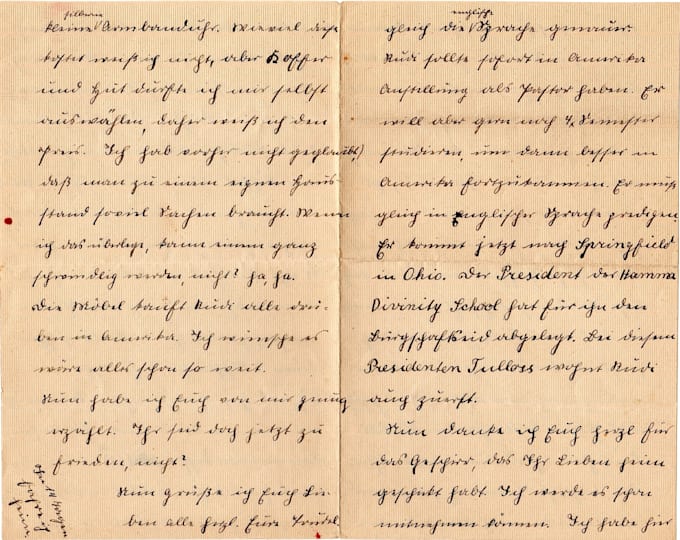 silberne
kleine Armbanduhr. Wieviel diese
kostet weiß ich nicht, aber Koffer
und Hut durfte ich mir selbst
auswählen, daher weiß ich den
Preis. Ich hab vorher nicht geglaubt,
daß man zu einem eignen Haus-
stand soviel Sachen braucht. Wenn
ich das überlege, kann einem ganz
schwindlig werden, nicht? ha, ha.
Die Möbel kauft Rudi alle drü-
ben in Amerika. Ich wünsche es
wäre alles schon so weit.
Nun habe ich Euch von mir genug
erzählt. Ihr seid doch jetzt zu
frieden, nicht?
Nun grüße ich Euch Lie-
ben alle herzl. Eure Trudel.
englische
gleich die Sprache genauer.
Rudi sollte sofort in Amerika
Anstellung als Pastor haben. Er
will aber gern noch 4 Semester
studieren, um dann besser in
Amerika fortzukommen. Er muß
gleich in Englischer Sprache predigen.
Er kommt jetzt nach Springfield
in Ohio. Der President der Hamma
Divinity School hat für ihn den
Bürgschaftseid abgelegt. Bei diesem
Presidenten Tulloss wohnt Rudi
auch zuerst.
Nun danke ich Euch herzl für
das Geschirr, das Ihr Lieben heim
geschickt habt. Ich werde es schon
mitnehmen können. Ich habe hier